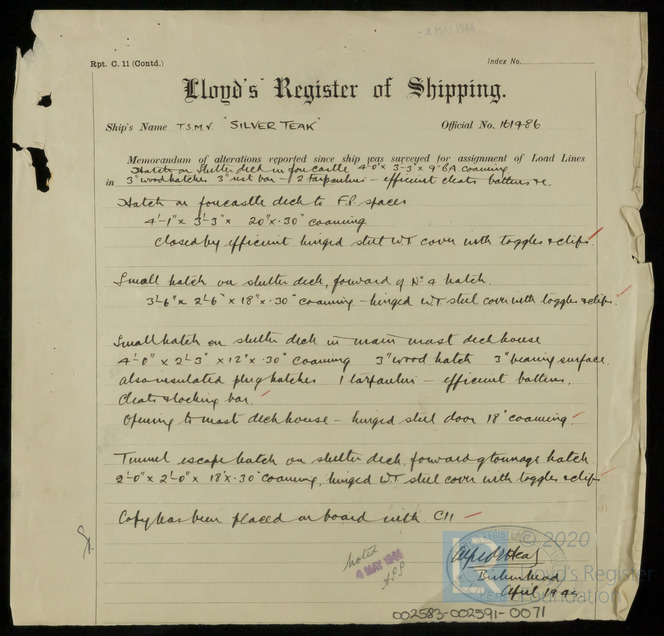 - 4 MAY 1944
Rpt. C. 11 (Contd.)
Index No.
Lloyd's Register of Shipping.
Ship's Name T.S.M.V. "SILVER TEAK"
Official No. 161986
Memorandum of alterations reported since ship was surveyed for assignment of Load Lines
Hatch on shelter deck in forecastle 4'-0" x 3'-3" x 9" BA coaming
in 3" wood hatches 3" rest bar - 2 Tarpaulins - efficient cleats battens &c.
Hatch on forecastle deck to F.P. spaces
4'-1" x 3'-3" x 20" x .30" coaming
closed by efficient hinged steel WT cover with toggles & clips
Small hatch on shelter deck, forward of No 4 hatch.
3'-6" x 2'-6" x 18" x .30" coaming - hinged WT steel cover with toggles & clips.
Small hatch on shelter deck in main mast deckhouse
4'-0" x 2'-3" x 12" x .30" coaming 3" wood hatch 3" bearing surface.
also insulated plug hatches 1 tarpaulin - efficient battens,
cleats & locking bar.
Opening to mast deckhouse - hinged steel door 18" coaming.
Tunnel escape hatch on shelter deck, forward of tonnage hatch
2'-0" x 2'-0" x 18" x .30" coaming, hinged WT steel cover with toggles & clips
Copy has been placed on board with C11 -
noted
4 MAY 1944
Birkenhead
April 1944
© 2020
Lloyd's Register
Foundation
002583-002591-0071